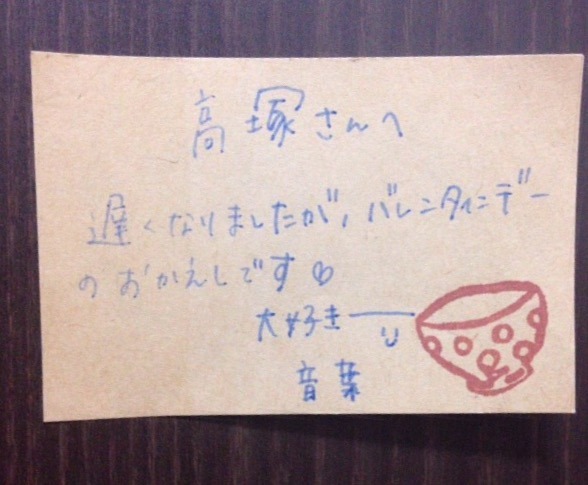 高塚さんへ
遅くなりましたが、バレンタインデー
のおかえしです♡
大好きー
音葉